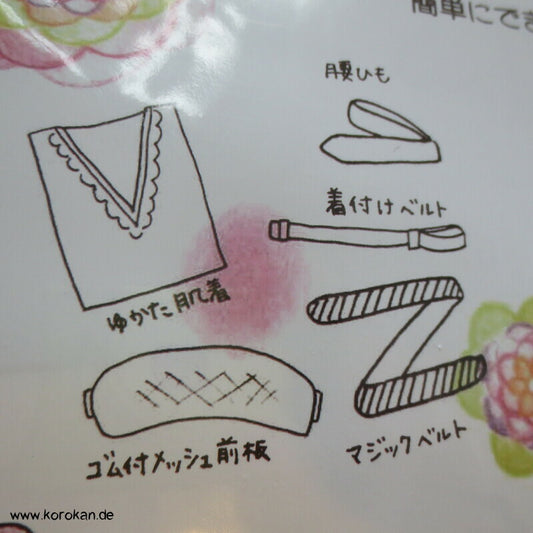 簡単にでき
腰ひも
着付けベルト
ゆかた肌着
ゴム付メッシュ前板
マジックベルト
www.korokan.de